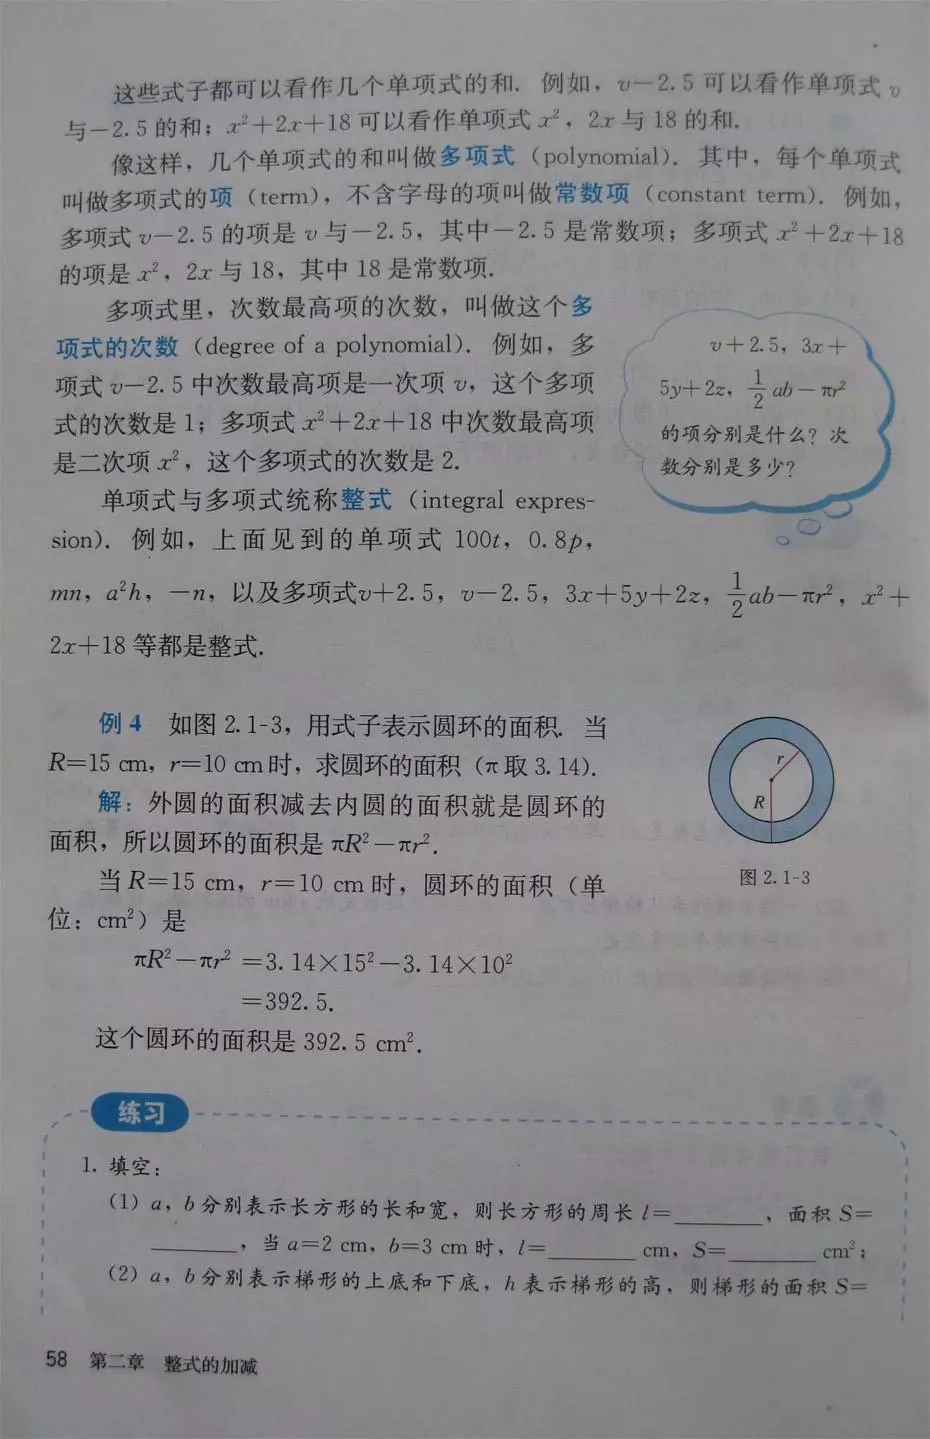 这些式子都可以看作几个单项式的和. 例如，v－2.5 可以看作单项式 v
与－2.5 的和；x²＋2x＋18 可以看作单项式 x²，2x 与 18 的和.
像这样，几个单项式的和叫做多项式（polynomial）. 其中，每个单项式
叫做多项式的项（term），不含字母的项叫做常数项（constant term）. 例如，
多项式 v－2.5 的项是 v 与－2.5，其中－2.5 是常数项；多项式 x²＋2x＋18
的项是 x²，2x 与 18，其中 18 是常数项.
多项式里，次数最高项的次数，叫做这个多
项式的次数（degree of a polynomial）. 例如，多
项式 v－2.5 中次数最高项是一次项 v，这个多项
式的次数是 1；多项式 x²＋2x＋18 中次数最高项
是二次项 x²，这个多项式的次数是 2.
v＋2.5，3x＋
5y＋2z，1/2 ab－πr²
的项分别是什么？次
数分别是多少？
单项式与多项式统称整式（integral expres-
sion）. 例如，上面见到的单项式 100t，0.8p，
mn，a²h，－n，以及多项式v＋2.5，v－2.5，3x＋5y＋2z，1/2 ab－πr²，x²＋
2x＋18 等都是整式.
例 4 如图 2.1-3，用式子表示圆环的面积. 当
R＝15 cm，r＝10 cm时，求圆环的面积（π取 3.14）.
解：外圆的面积减去内圆的面积就是圆环的
面积，所以圆环的面积是 πR²－πr².
当 R＝15 cm，r＝10 cm 时，圆环的面积（单
位：cm²）是
πR²－πr² ＝3.14×15²－3.14×10²
＝392.5.
这个圆环的面积是 392.5 cm².
r
R
图 2.1-3
练习
1. 填空：
（1）a，b 分别表示长方形的长和宽，则长方形的周长 l＝________，面积 S＝
________，当 a＝2 cm，b＝3 cm 时，l＝________ cm，S＝________ cm²；
（2）a，b 分别表示梯形的上底和下底，h 表示梯形的高，则梯形的面积 S＝
58 第二章 整式的加减